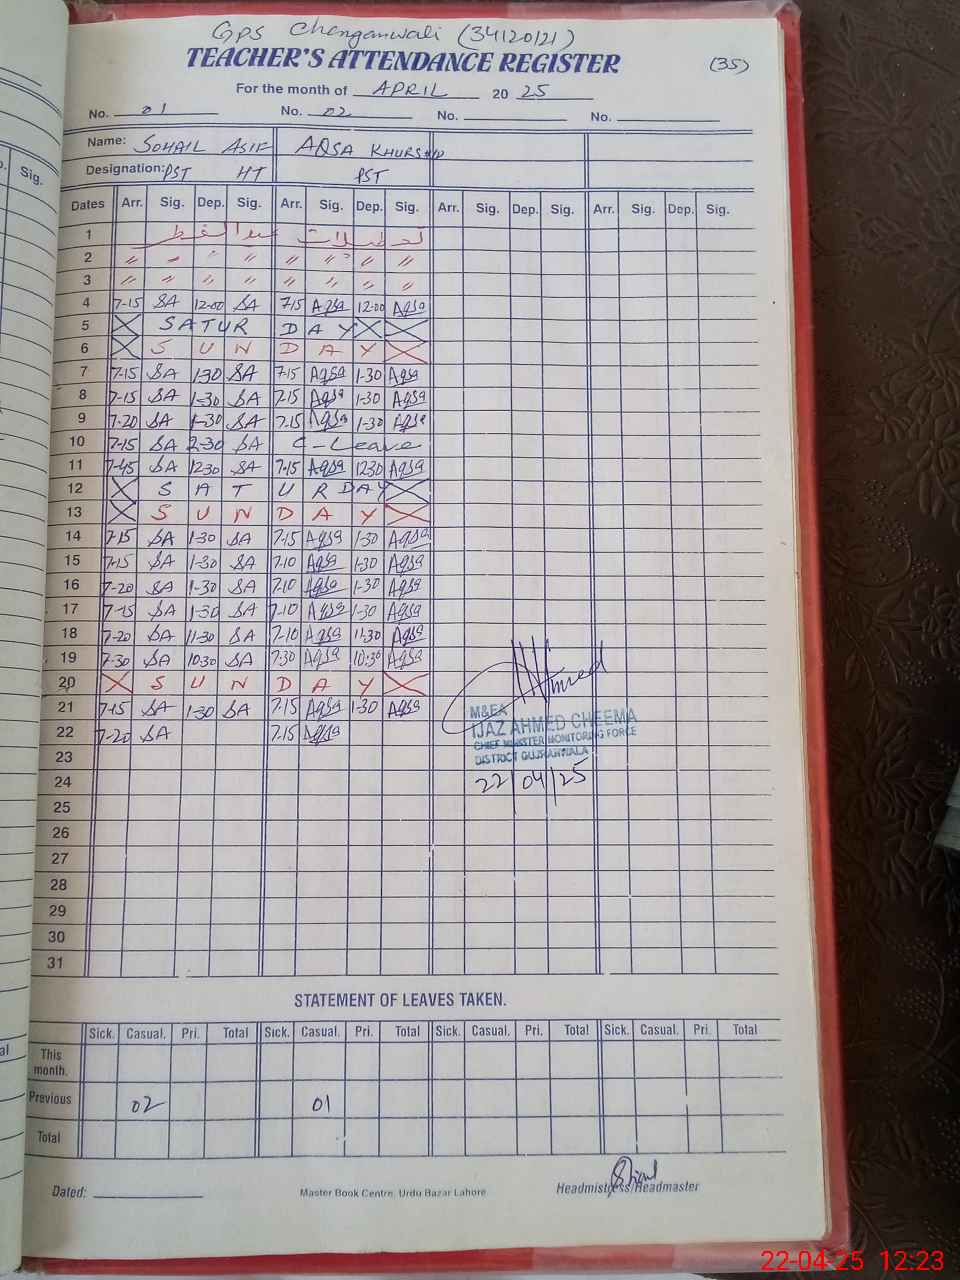 GPS Chenganwali (34120121)
TEACHER'S ATTENDANCE REGISTER (35)
For the month of APRIL 20 25
No. 01 No. 02 No. No.
Name: SOHAIL ASIF AQSA KHURSHID
Designation: PST HT PST
Dates Arr. Sig. Dep. Sig. Arr. Sig. Dep. Sig. Arr. Sig. Dep. Sig. Arr. Sig. Dep. Sig.
1 تعطیلات عید الفطر
2 〃 〃 〃 〃 〃 〃 〃 〃
3 〃 〃 〃 〃 〃 〃 〃 〃
4 7-15 SA 12-00 SA 7.15 Aqsa 12-00 Aqsa
5 SATUR DAY
6 SUN DAY
7 7-15 SA 1-30 SA 7.15 Aqsa 1-30 Aqsa
8 7-15 SA 1-30 SA 7.15 Aqsa 1-30 Aqsa
9 7-20 SA 1-30 SA 7.15 Aqsa 1-30 Aqsa
10 7-15 SA 2-30 SA C-Leave
11 7-45 SA 1230 SA 7.15 Aqsa 1230 Aqsa
12 SATURDAY
13 SUNDAY
14 7-15 SA 1-30 SA 7.15 Aqsa 1-30 Aqsa
15 7-15 SA 1-30 SA 7.10 Aqsa 1-30 Aqsa
16 7-20 SA 1-30 SA 7.10 Aqsa 1-30 Aqsa
17 7-15 SA 1-30 SA 7-10 Aqsa 1-30 Aqsa
18 7-20 SA 11-30 SA 7-10 Aqsa 11.30 Aqsa
19 7-30 SA 10.30 SA 7.30 Aqsa 10.30 Aqsa
20 SUNDAY
21 7-15 SA 1-30 SA 7.15 Aqsa 1-30 Aqsa
22 7-20 SA 7.15 Aqsa
M&EA
IJAZ AHMED CHEEMA
CHIEF MINISTER MONITORING FORCE
DISTRICT GUJRANWALA
22/04/25
23
24
25
26
27
28
29
30
31
STATEMENT OF LEAVES TAKEN.
Sick. Casual. Pri. Total Sick. Casual. Pri. Total Sick. Casual. Pri. Total Sick. Casual. Pri. Total
This month.
Previous 02 01
Total
Dated: Master Book Centre, Urdu Bazar Lahore Headmistress/Headmaster
22-04-25 12:23